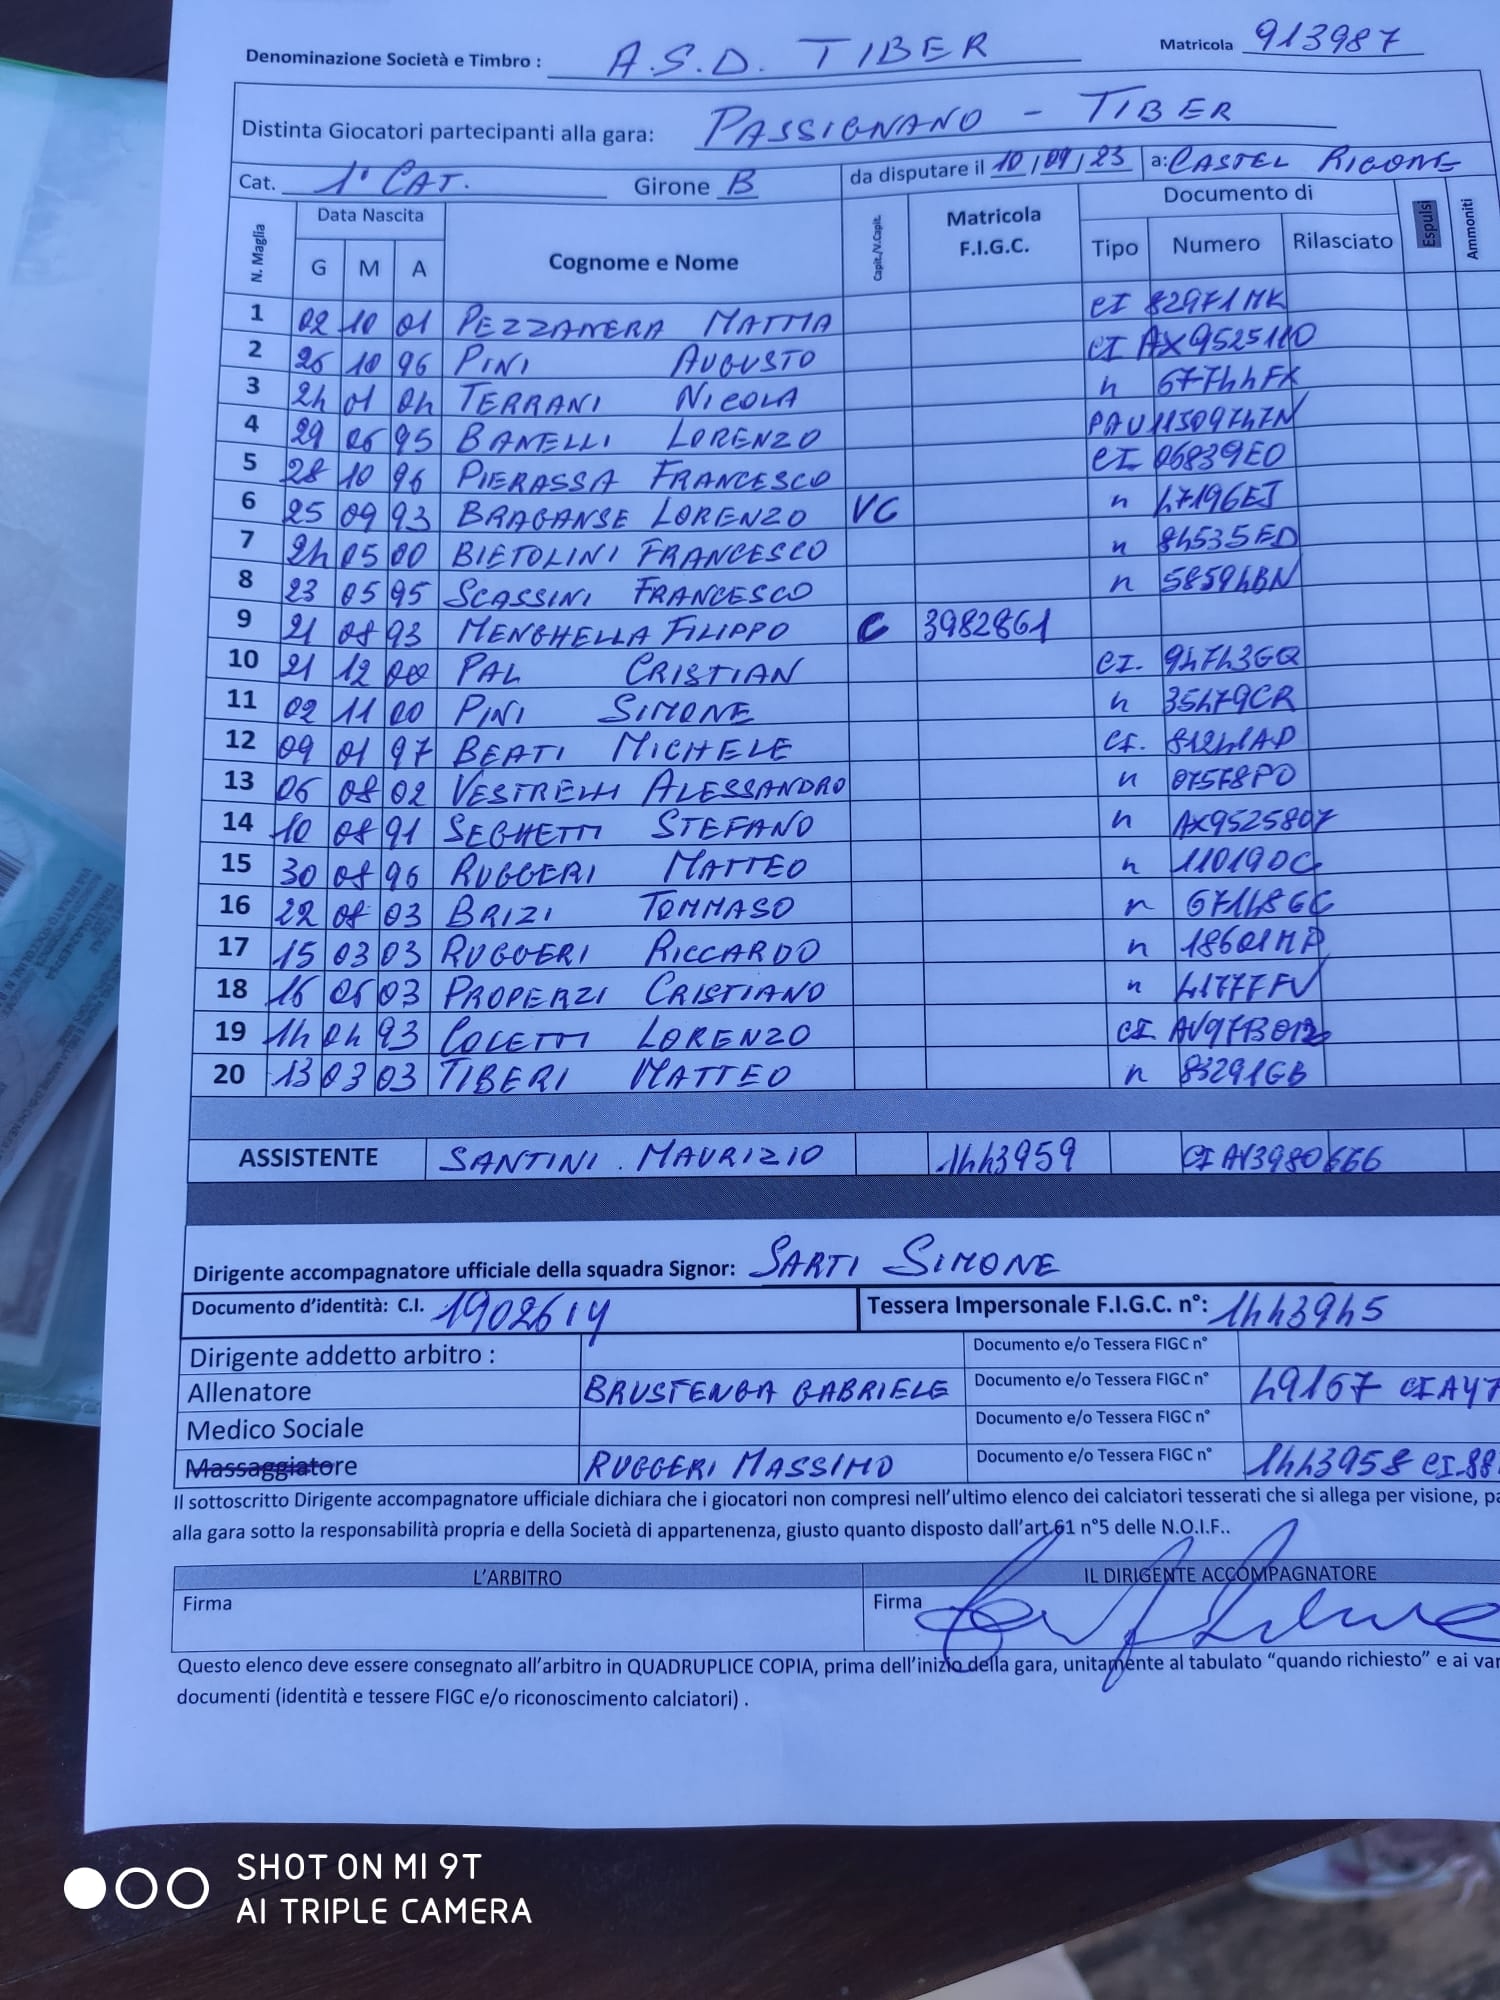 Denominazione Società e Timbro : A.S.D. TIBER Matricola 913987
Distinta Giocatori partecipanti alla gara: PASSIGNANO - TIBER
Cat. 1° CAT. Girone B da disputare il 10/09/23 a: CASTEL RIGONE
N. Maglia Data Nascita Cognome e Nome Capit./V.Capit. Matricola F.I.G.C. Documento di Espulsi Ammoniti
G M A Tipo Numero Rilasciato
1 02 10 01 PEZZANERA MATTIA CI 82971MK
2 26 10 96 PINI AUGUSTO CI AX9525110
3 24 01 04 TERRANI NICOLA " 67744FX
4 29 06 95 BANELLI LORENZO PAU
5 28 10 96 PIERASSA FRANCESCO CI 06839EO
6 25 09 93 BRAGANSE LORENZO VC " 47196EJ
7 24 05 00 BIETOLINI FRANCESCO " 84535ED
8 23 05 95 SCASSINI FRANCESCO " 58594BN
9 21 08 93 MENGHELLA FILIPPO C 3982861
10 21 12 00 PAL CRISTIAN CI. 94743GQ
11 02 11 00 PINI SIMONE " 35479CR
12 09 01 97 BEATI MICHELE CI. 81241AP
13 06 08 02 VESTRELLI ALESSANDRO " 07578PO
14 10 08 91 SEGHETTI STEFANO " AX9525807
15 30 08 96 RUGGERI MATTEO " 11019DC
16 22 08 03 BRIZI TOMMASO " 67148GC
17 15 03 03 RUGGERI RICCARDO " 18601MP
18 16 06 03 PROPERZI CRISTIANO " 41777FV
19 14 04 93 COLETTI LORENZO CI
20 13 03 03 TIBERI MATTEO " 83291GB
ASSISTENTE SANTINI. MAURIZIO 1443959 CI AV3980666
Dirigente accompagnatore ufficiale della squadra Signor: SARTI SIMONE
Documento d'identità: C.I. 1902614 Tessera Impersonale F.I.G.C. n°: 1443945
Dirigente addetto arbitro : Documento e/o Tessera FIGC n°
Allenatore BRUSTENGA GABRIELE Documento e/o Tessera FIGC n° 49167 CI AY7
Medico Sociale Documento e/o Tessera FIGC n°
Massaggiatore RUGGERI MASSIMO Documento e/o Tessera FIGC n° 1443958 CI-88
Il sottoscritto Dirigente accompagnatore ufficiale dichiara che i giocatori non compresi nell'ultimo elenco dei calciatori tesserati che si allega per visione, pa
alla gara sotto la responsabilità propria e della Società di appartenenza, giusto quanto disposto dall'art.61 n°5 delle N.O.I.F..
L'ARBITRO IL DIRIGENTE ACCOMPAGNATORE
Firma Firma
Questo elenco deve essere consegnato all'arbitro in QUADRUPLICE COPIA, prima dell'inizio della gara, unitamente al tabulato "quando richiesto" e ai var
documenti (identità e tessere FIGC e/o riconoscimento calciatori) .
SHOT ON MI 9T
AI TRIPLE CAMERA